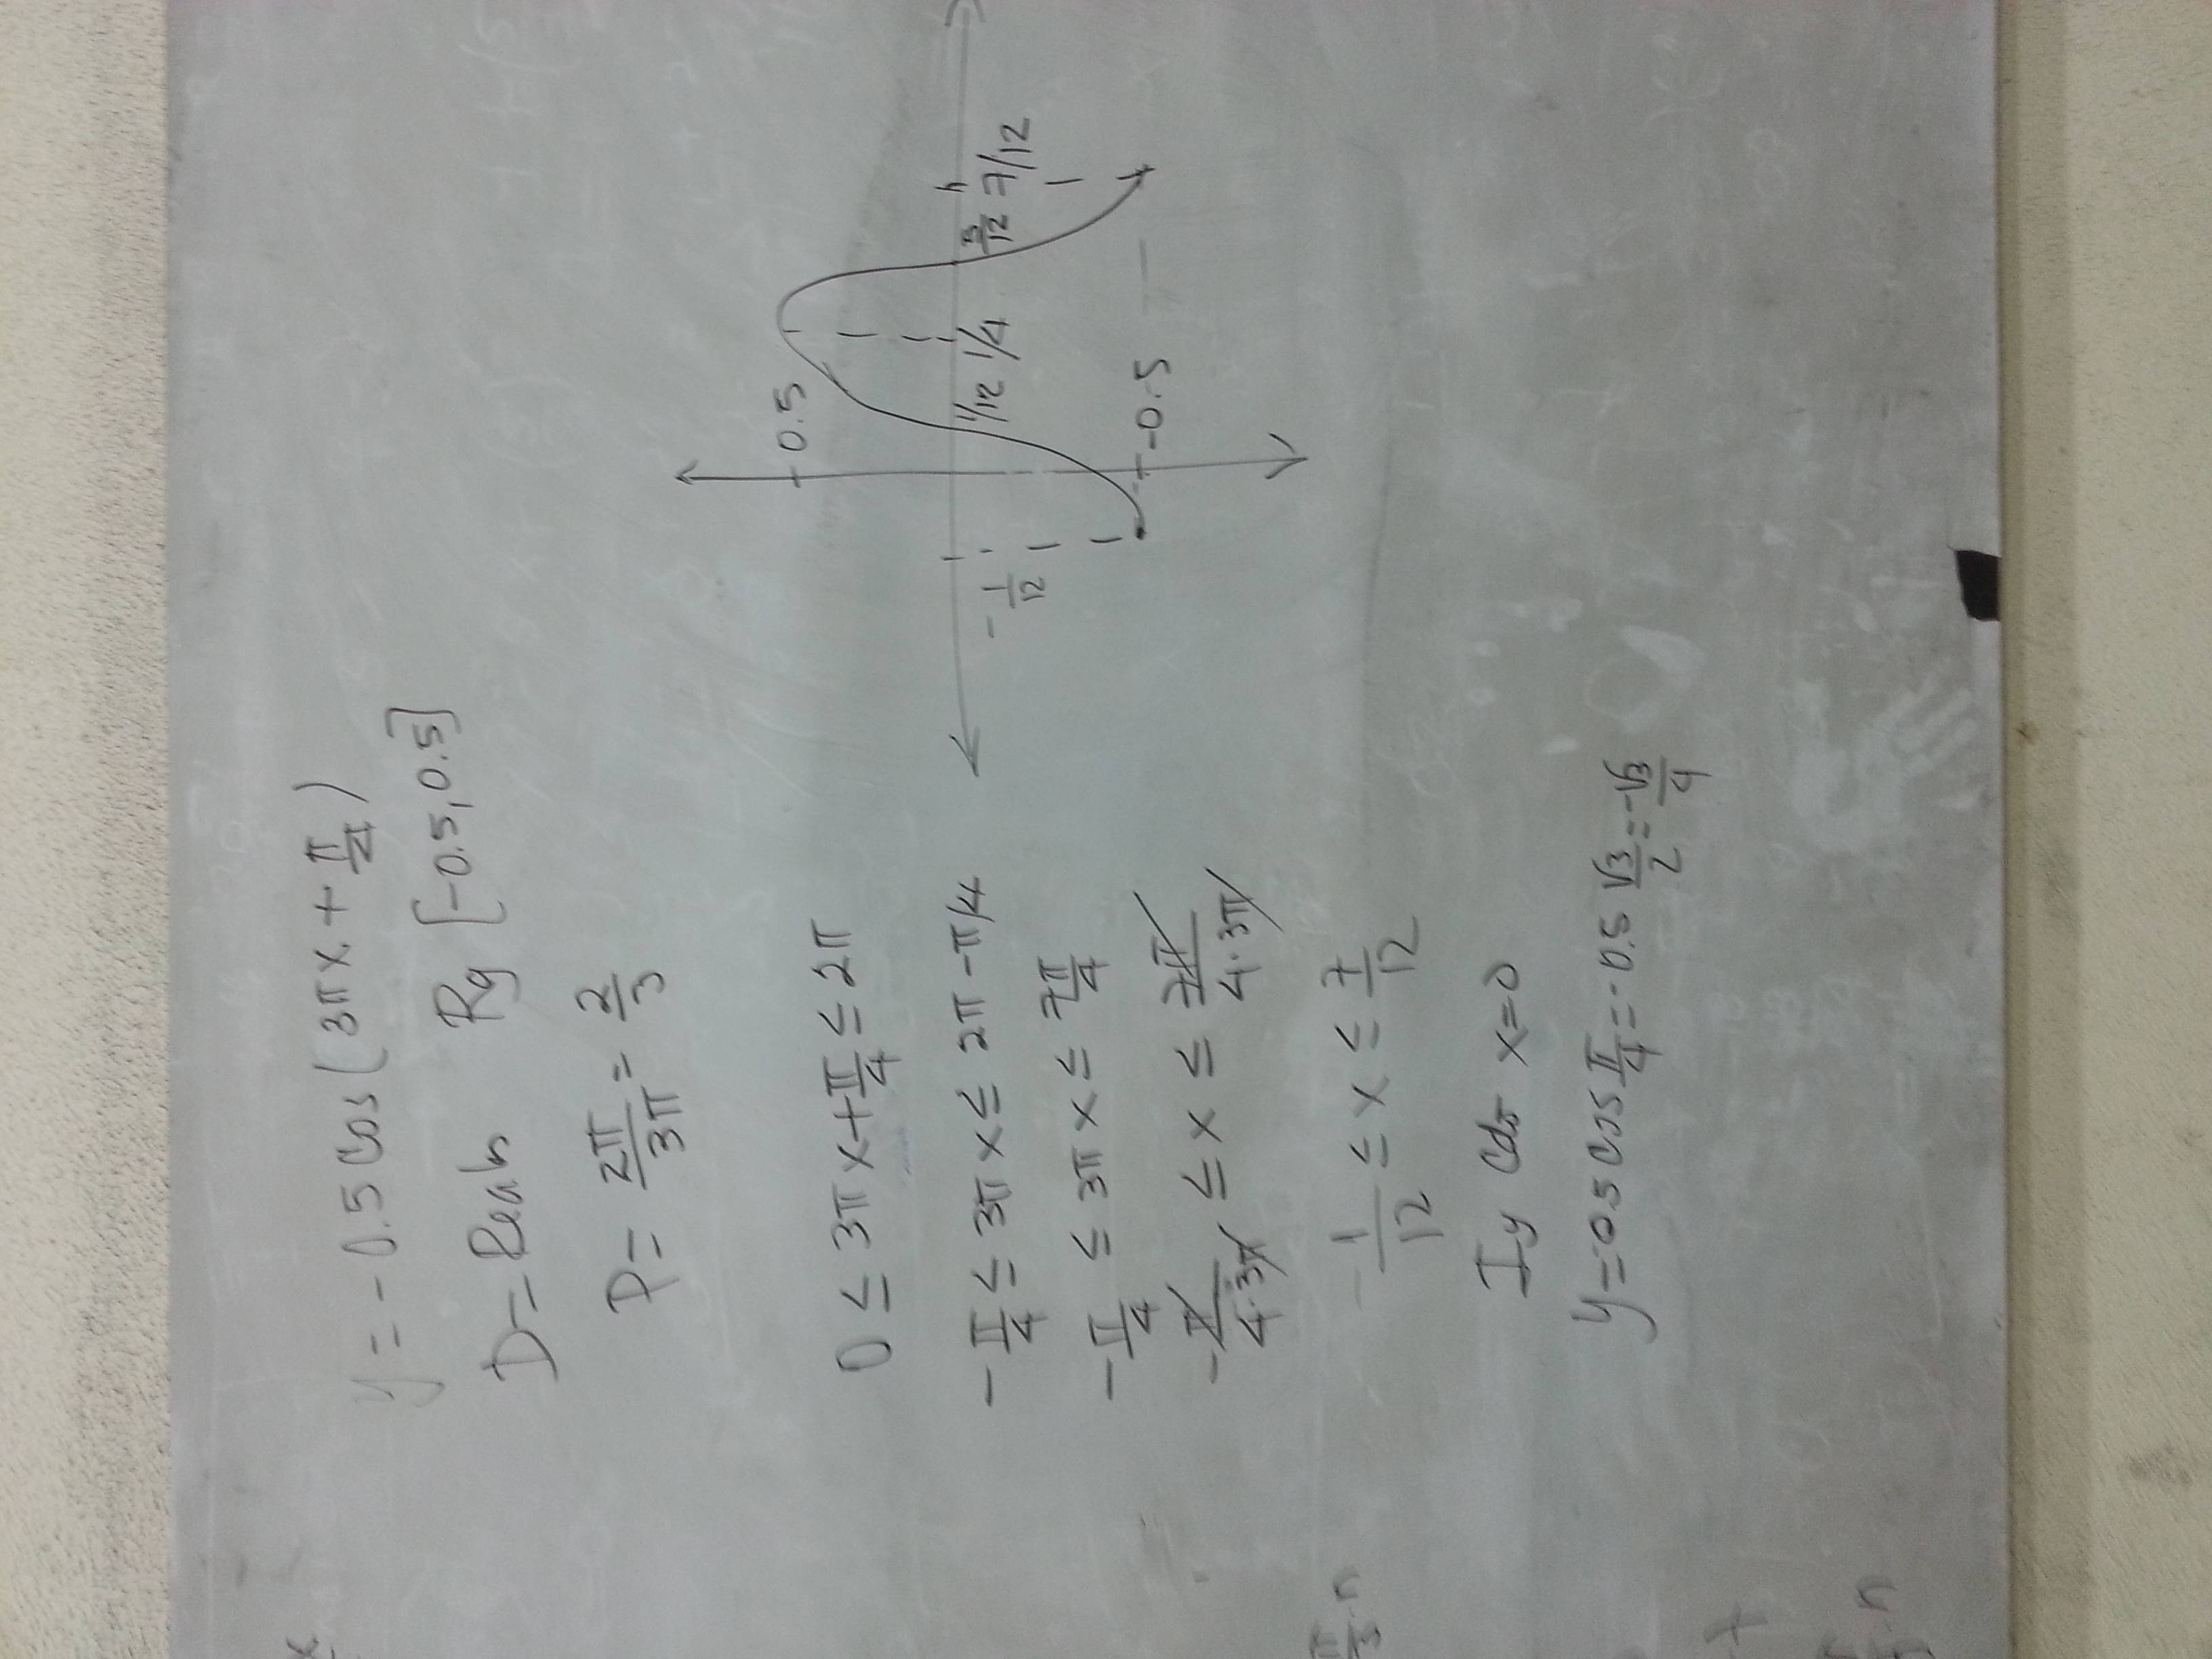 y = -0.5 cos(3πx + π/4)
D = Reals Rg [-0.5, 0.5]
P = 2π/3π = 2/3
0 ≤ 3πx + π/4 ≤ 2π
-π/4 ≤ 3πx ≤ 2π - π/4
-π/4 ≤ 3πx ≤ 7π/4
-π/4·3π ≤ x ≤ 7π/4·3π
-1/12 ≤ x ≤ 7/12
Iy Cdo x=0
y = -0.5 cos π/4 = -0.5 √3/2 = -√3/4
0.5
-1/12 1/12 1/4 5/12 7/12
-0.5
x
π/3 n
n